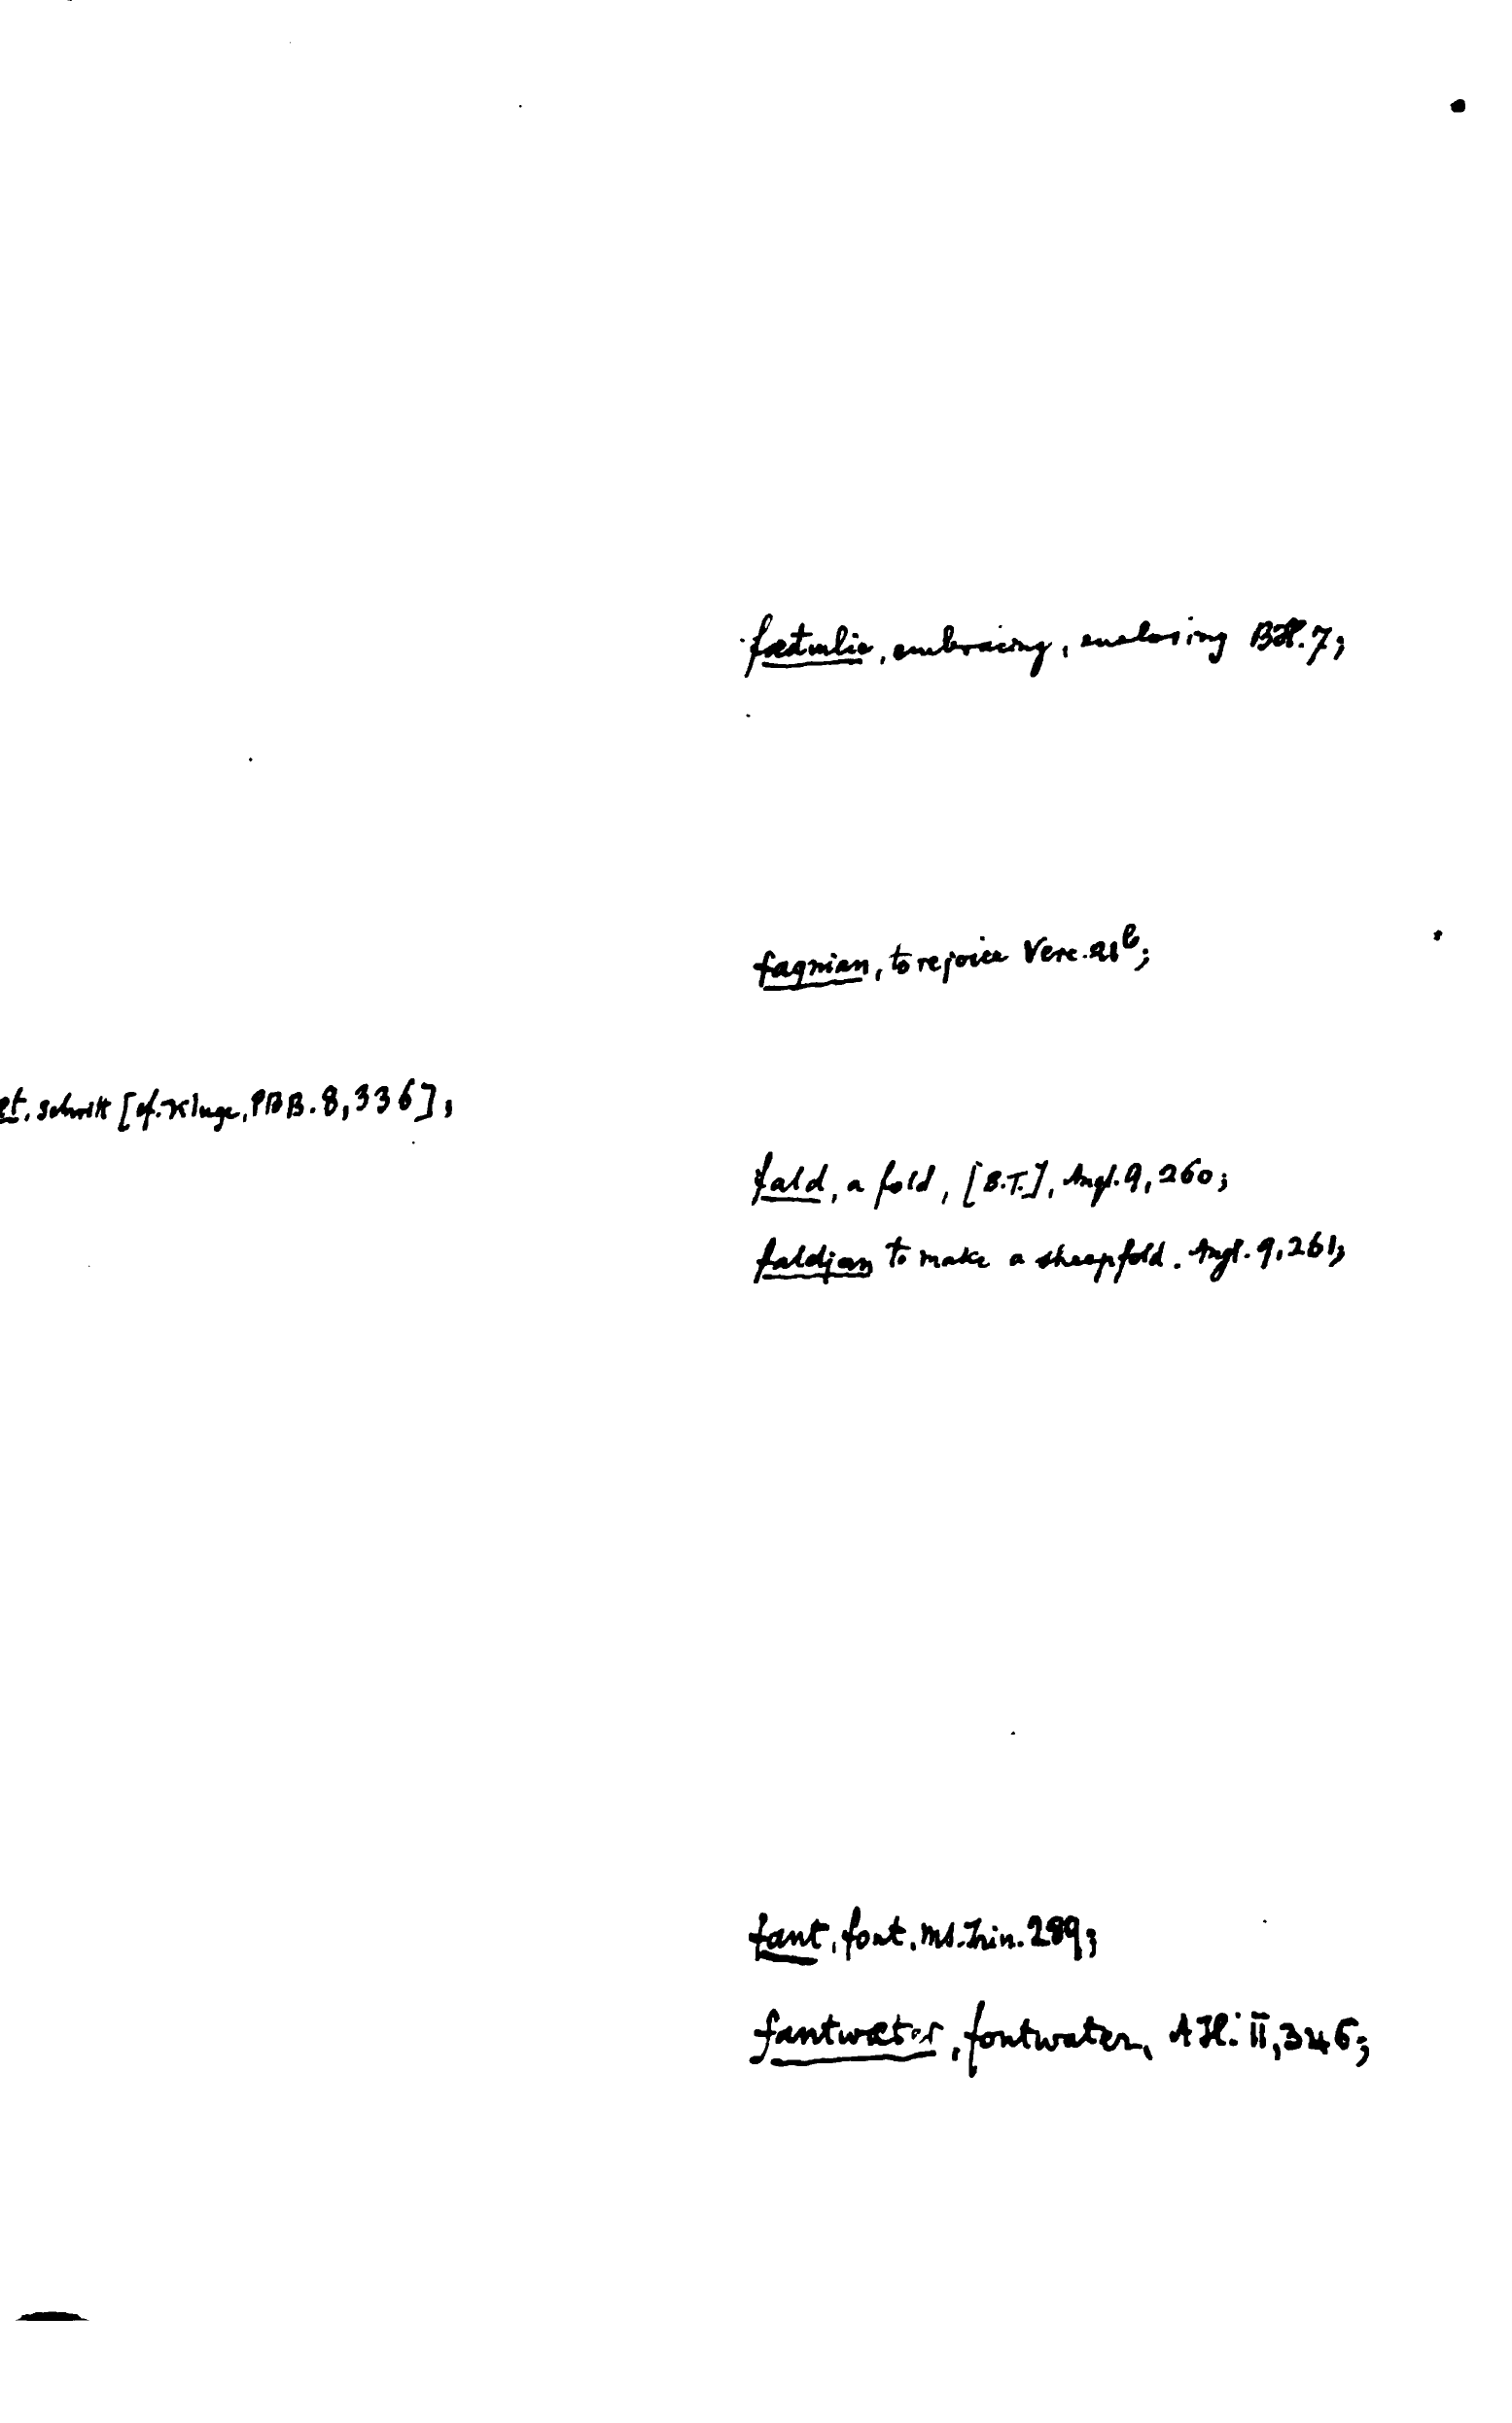 fætmlic, embracing, enclosing BH. 7;
fagnian, to rejoice Verc. 21b;
et, schritt [cf. Kluge, PBB. 8, 336];
fald, a fold, [B.T.], Angl. 9, 260;
faldjan to make a sheepfold. Angl. 9, 261;
fant, font. Ms. 289;
fantwæter, fontwater, AH. II, 346;